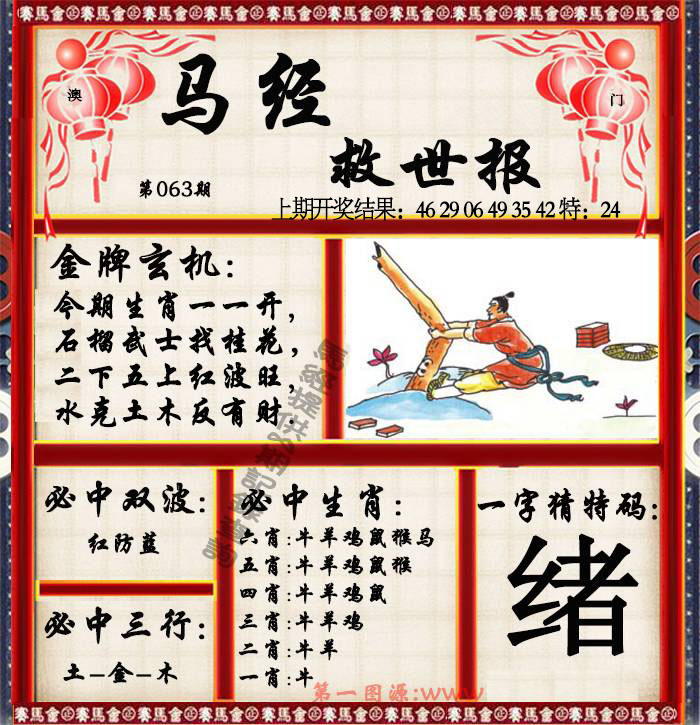 賽馬會正賽馬會正賽馬會正賽馬會正賽馬會正賽馬會
澳
门
马经
救世报
第063期
上期开奖结果：46 29 06 49 35 42 特：24
金牌玄机：
今期生肖一一开，
石榴武士找桂花，
二下五上红波旺，
水克土木反有财.
必中双波：
红防蓝
必中三行：
土-金-木
必中生肖：
六肖:牛羊鸡鼠猴马
五肖:牛羊鸡鼠猴
四肖:牛羊鸡鼠
三肖:牛羊鸡
二肖:牛羊
一肖:牛
一字猜特码:
绪
第一图源:www